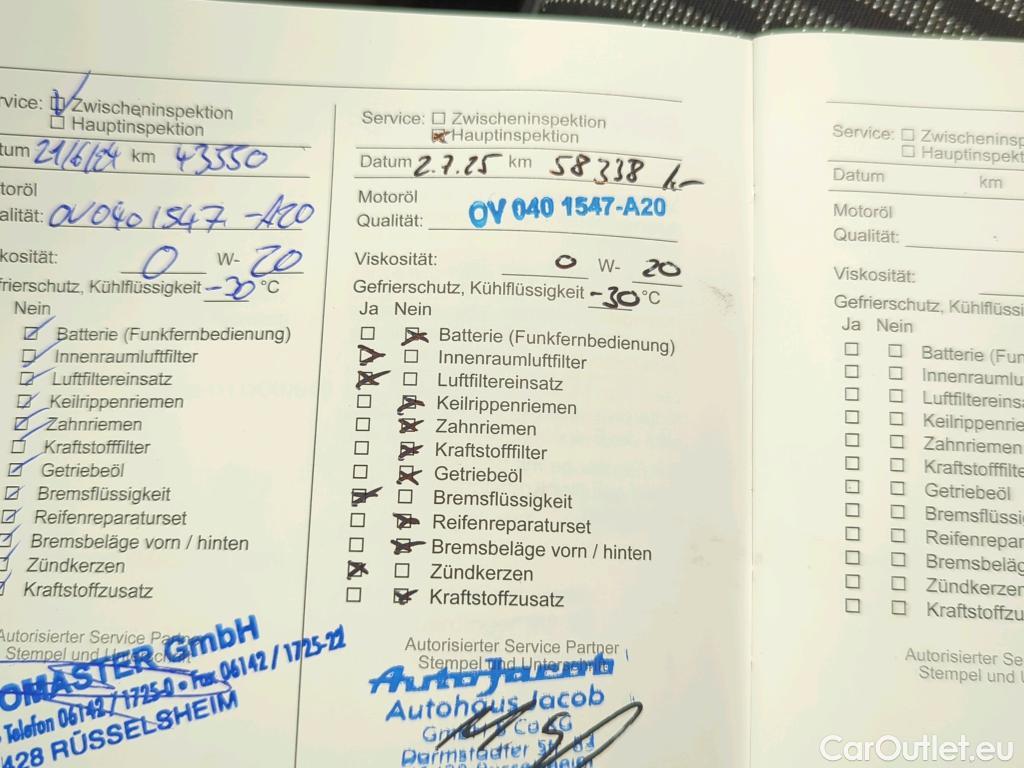 rvice: Zwischeninspektion
Hauptinspektion
tum 21/6/24 km 43550
toröl
alität: OV0401547-A20
skosität: 0 W- 20
frierschutz, Kühlflüssigkeit -30 °C
Nein
Batterie (Funkfernbedienung)
Innenraumluftfilter
Luftfiltereinsatz
Keilrippenriemen
Zahnriemen
Kraftstofffilter
Getriebeöl
Bremsflüssigkeit
Reifenreparaturset
Bremsbeläge vorn / hinten
Zündkerzen
Kraftstoffzusatz
Autorisierter Service Partner
Stempel und Unterschrift
OMASTER GmbH
Telefon 06142/1725-0 • Fax 06142/1725-22
428 RÜSSELSHEIM
Service: Zwischeninspektion
Hauptinspektion
Datum 2.7.25 km 58338
Motoröl
Qualität: OV 040 1547-A20
Viskosität: 0 W- 20
Gefrierschutz, Kühlflüssigkeit -30 °C
Ja Nein
Batterie (Funkfernbedienung)
Innenraumluftfilter
Luftfiltereinsatz
Keilrippenriemen
Zahnriemen
Kraftstofffilter
Getriebeöl
Bremsflüssigkeit
Reifenreparaturset
Bremsbeläge vorn / hinten
Zündkerzen
Kraftstoffzusatz
Autorisierter Service Partner
Stempel und Unterschrift
AutoJacob
Autohaus Jacob
GmbH & Co KG
Darmstädter Str.
Service: Zwischeninsp
Hauptinspekt
Datum km
Motoröl
Qualität:
Viskosität:
Gefrierschutz, Kühlflüssi
Ja Nein
Batterie (Fun
Innenraumlu
Luftfiltereinsa
Keilrippenrie
Zahnriemen
Kraftstofffilte
Getriebeöl
Bremsflüssig
Reifenrepar
Bremsbeläg
Zündkerzen
Kraftstoffzu
Autorisierter Se
Stempel und U
CarOutlet.eu